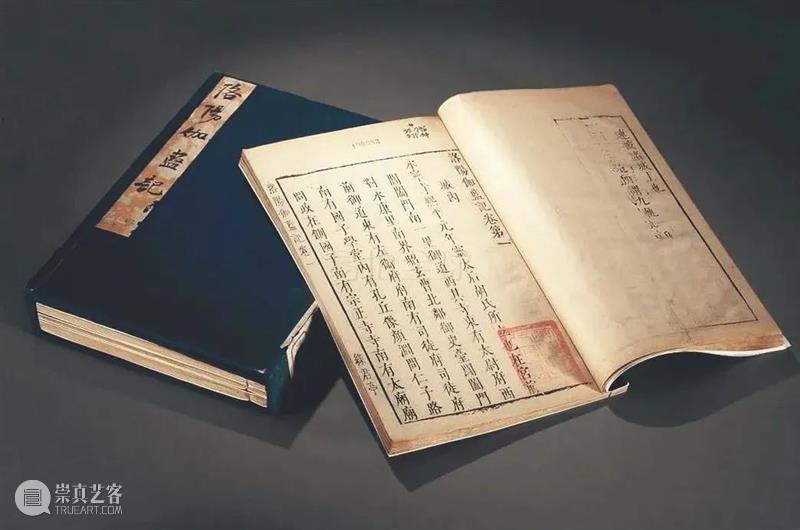 洛陽伽藍記
洛陽伽藍記卷第一
城內
永寧寺熙平元年靈太后胡氏所立也在宮前
閶闔門南一里御道西其寺東有太尉府西
對永康里南界昭玄曹北鄰御史臺閶闔門
前御道東有左衛府府南有司徒府司徒府
南有國子學堂內有孔丘像顏淵問仁子路
問政在側國子南有宗正寺寺南有太廟廟
洛陽伽藍記卷一
綠君亭
崇真艺客
TRUEART.COM